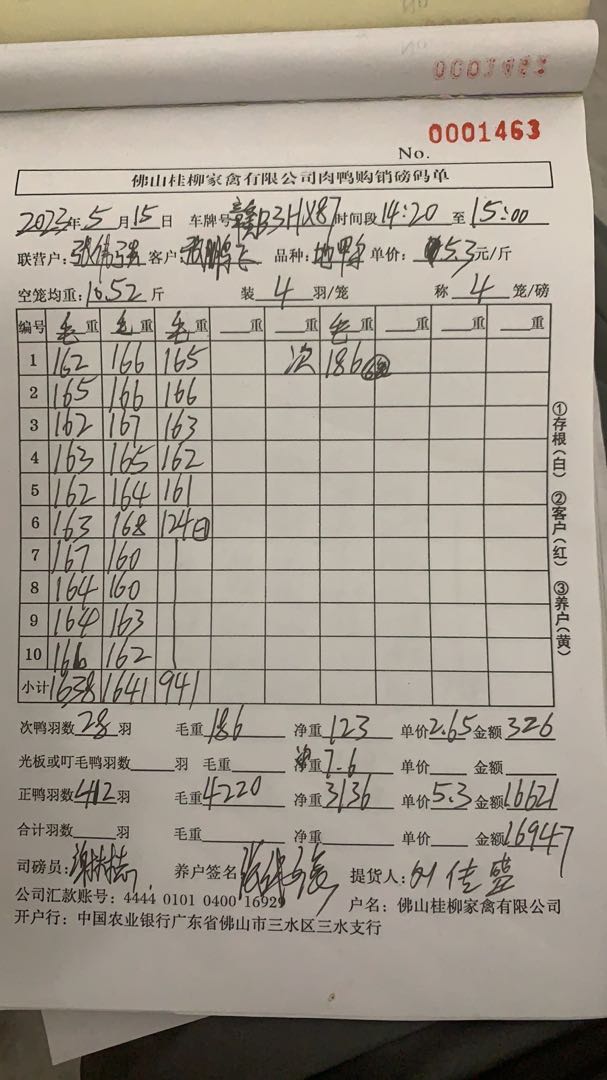 0001463
0001463
No.
佛山桂柳家禽有限公司肉鸭购销磅码单
2023年5月15日 车牌号 赣B3HX87 时间段 14:20 至 15:00
联营户:张伟强 客户: 品种: 单价:5.3元/斤
空笼均重:16.52斤 装 4 羽/笼 称 4 笼/磅
编号 毛重 毛重 毛重 重 重 毛重 重 重 重
1 162 166 165 次 186
2 165 166 166
3 162 167 163
4 163 165 162
5 162 164 161
6 163 168 124
7 167 160
8 164 160
9 164 163
10 166 162
小计 1638 1641 941
①存根(白) ②客户(红) ③养户(黄)
次鸭羽数 28 羽 毛重 186 净重 123 单价 2.65 金额 326
光板或叮毛鸭羽数 羽 毛重 净重 7.6 单价 金额
正鸭羽数 412 羽 毛重 4220 净重 3136 单价 5.3 金额 16621
合计羽数 羽 毛重 净重 单价 金额 16947
司磅员: 养户签名 提货人:
公司汇款账号:4444 0101 0400 16929 户名:佛山桂柳家禽有限公司
开户行:中国农业银行广东省佛山市三水区三水支行